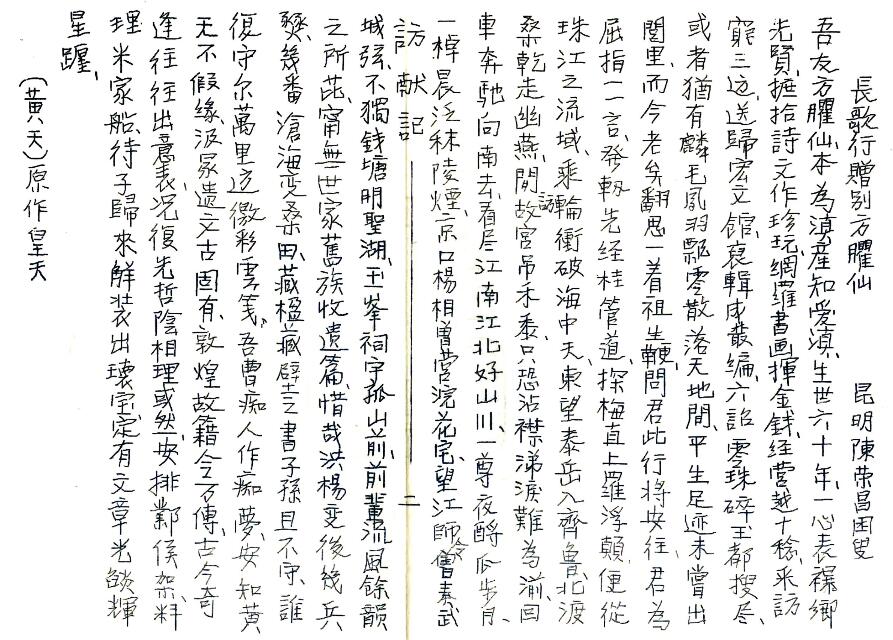 長歌行贈別方臞仙　昆明陳荣昌困叟
吾友方臞仙本為滇産知愛滇、生世六十年、一心表襮鄉
先賢、摭拾詩文作珍玩、網羅書画揮金錢、经营越十稔、采訪
窮三迤、送歸宏文館、裒輯成叢編、六詔零珠碎玉都搜尽、
或者猶有麟毛凤羽飄零散落天地間、平生足迹未嘗出
閭里、而今老矣翻思一着祖生鞭、問君此行將安往、君為
屈指一一言、發軔先经桂管道、探梅直上羅浮顛、便從
珠江之流域、乘輪衝破海中天、東望泰岳入齊魯、北渡
桑乾走幽燕、間訪故宫吊禾黍、只恐沾襟涕淚難為湔、回
車奔馳向南去、看尽江南江北好山川、一尊夜酹瓜步月、
一棹晨泛秣陵煙、京口楊相曾营浣花宅、望江師令曾奏武
訪献記　二
城弦、不獨錢塘明聖湖、玉峯祠宇孤山前、前輩流風餘韻
之所茈、甯無世家舊族收遺篇、惜哉洪楊变後幾兵
燹、幾番滄海变桑田、藏楹藏壁之書子孫且不守、誰
復守尔萬里边徼彩雲笺、吾曹痴人作痴夢、安知黄
天不假缘、汲冢遗文古固有、敦煌故籍今万傳、古今奇
逢往往出意表、况復先哲陰相理或然、安排鄴侯架、料
理米家船、待子歸來解装出瓌宝、定有文章光燄輝
星躔、
（黄天）原作皇天